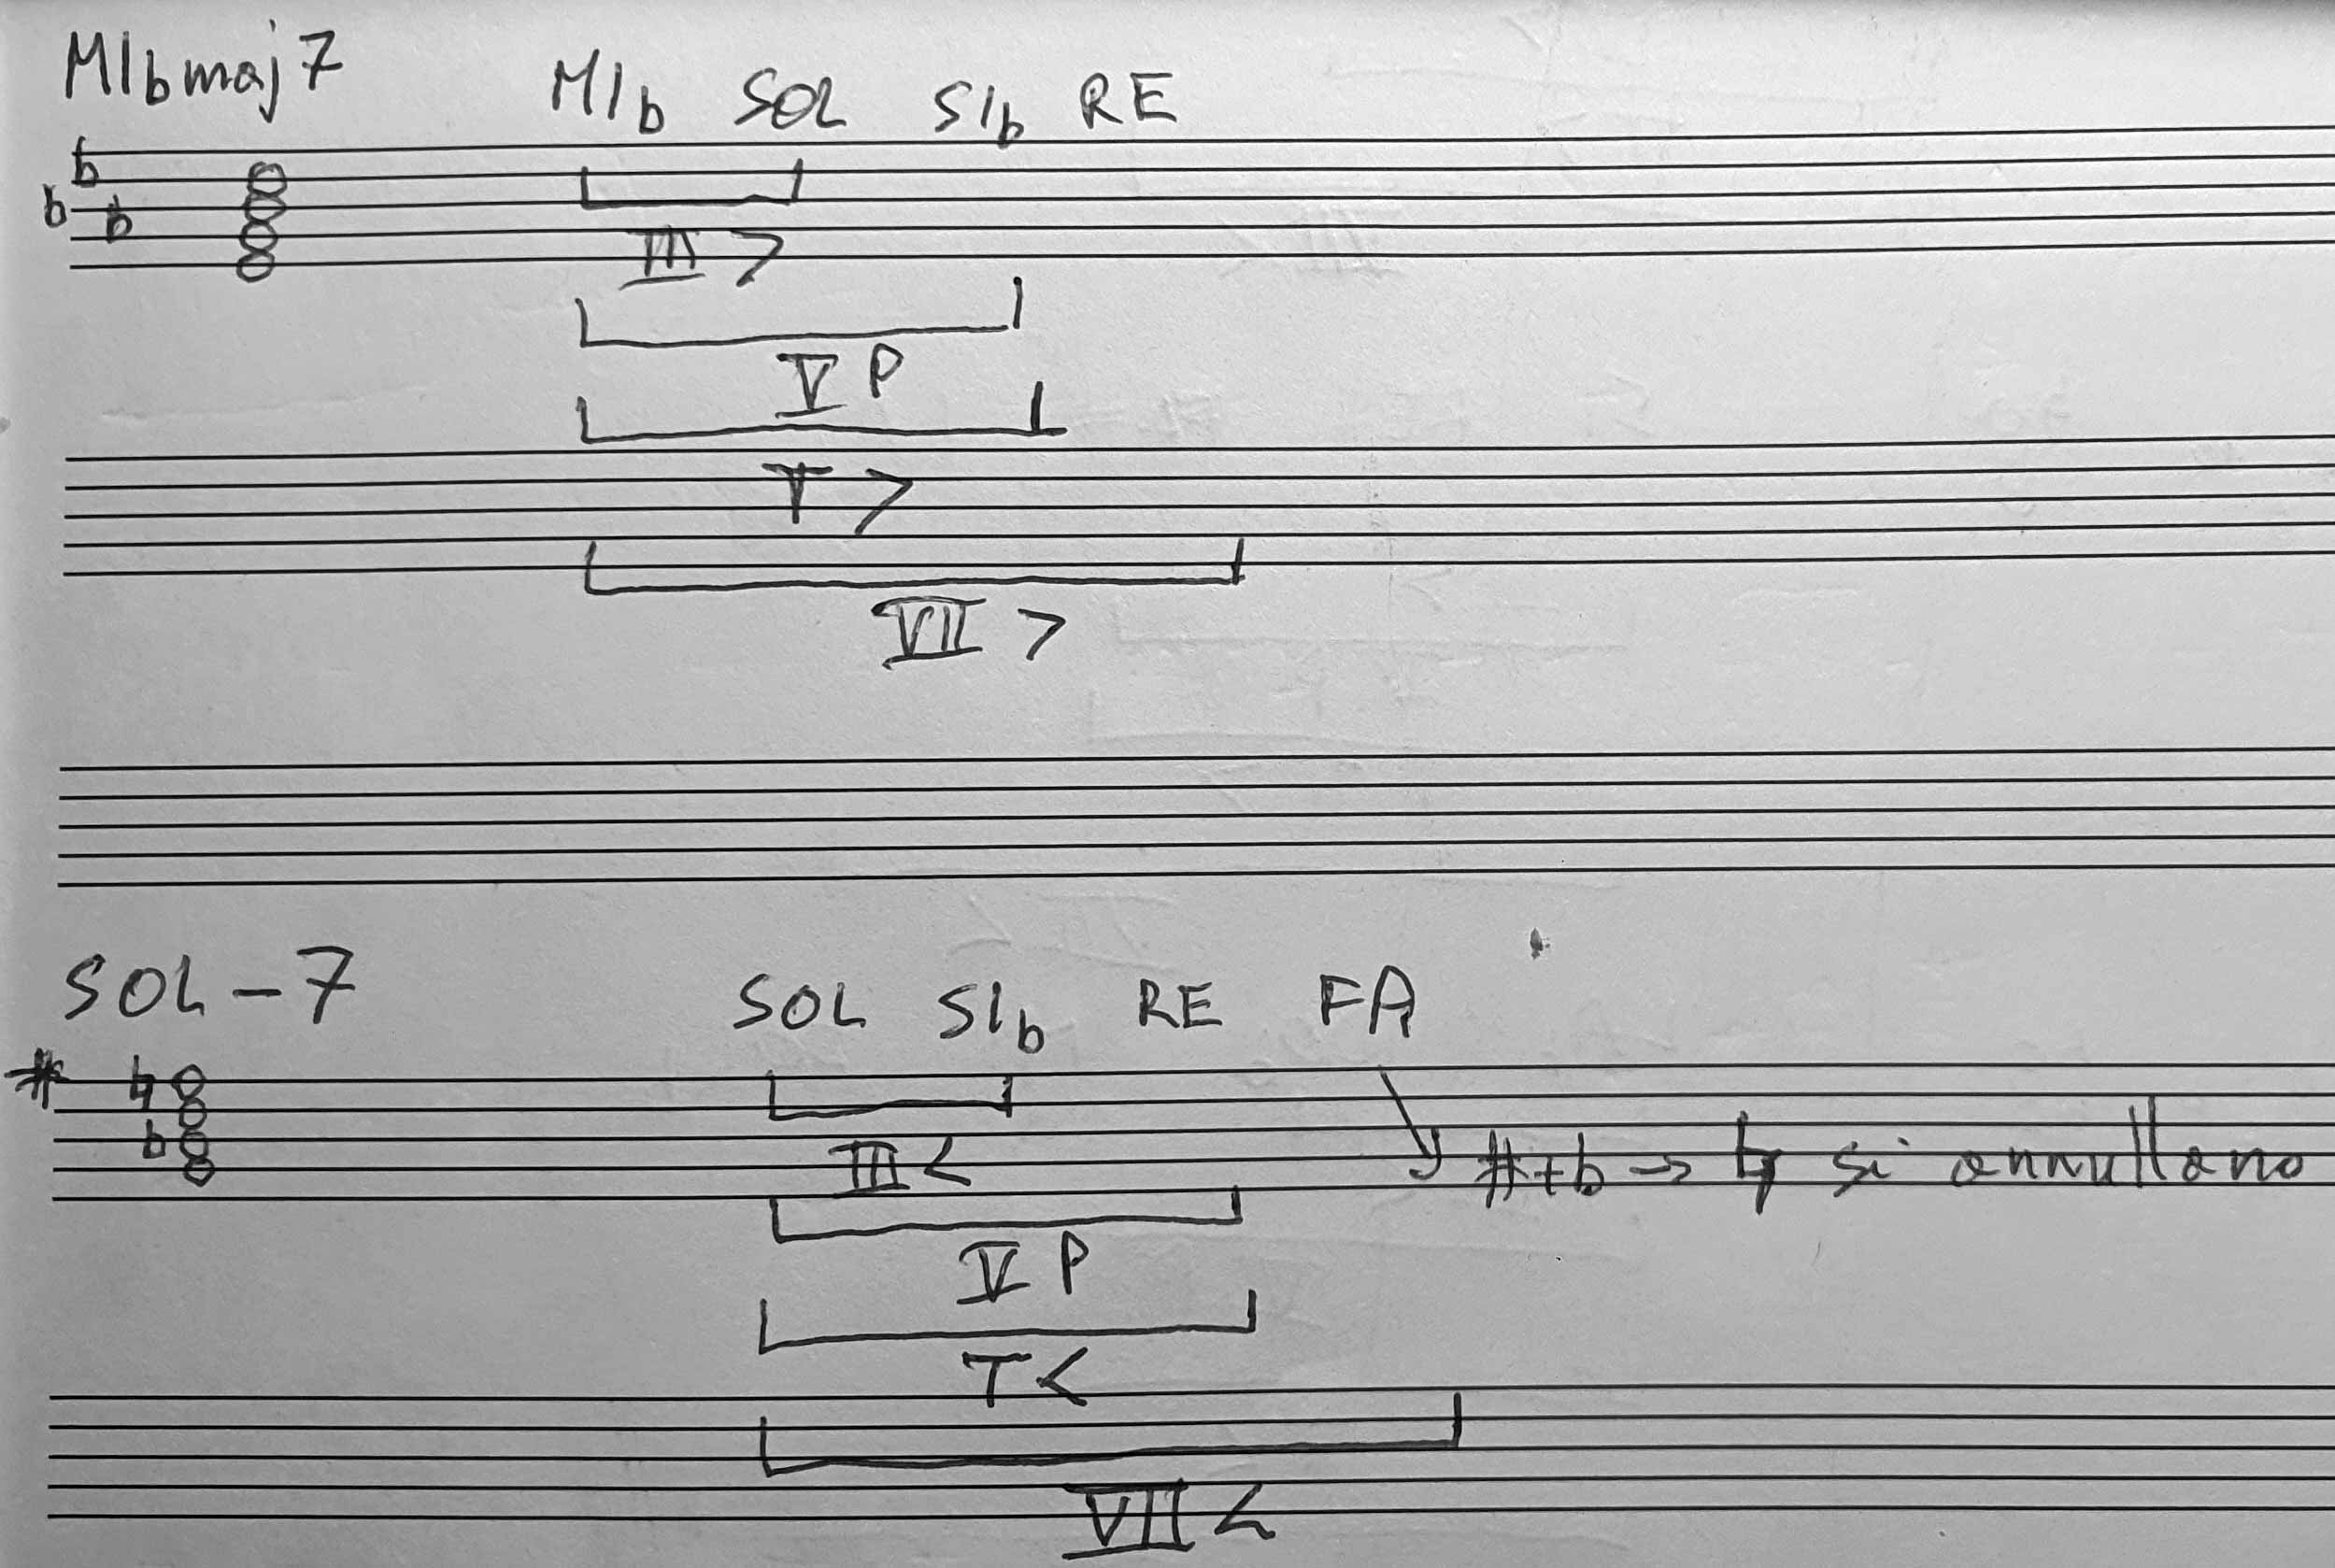 MIb maj7
MIb SOL SIb RE
b
b b
III >
V P
T >
VII >
SOL-7
SOL SIb RE FA
# ♮
b
III < #+b → ♮ si annullano
V P
T <
VII <